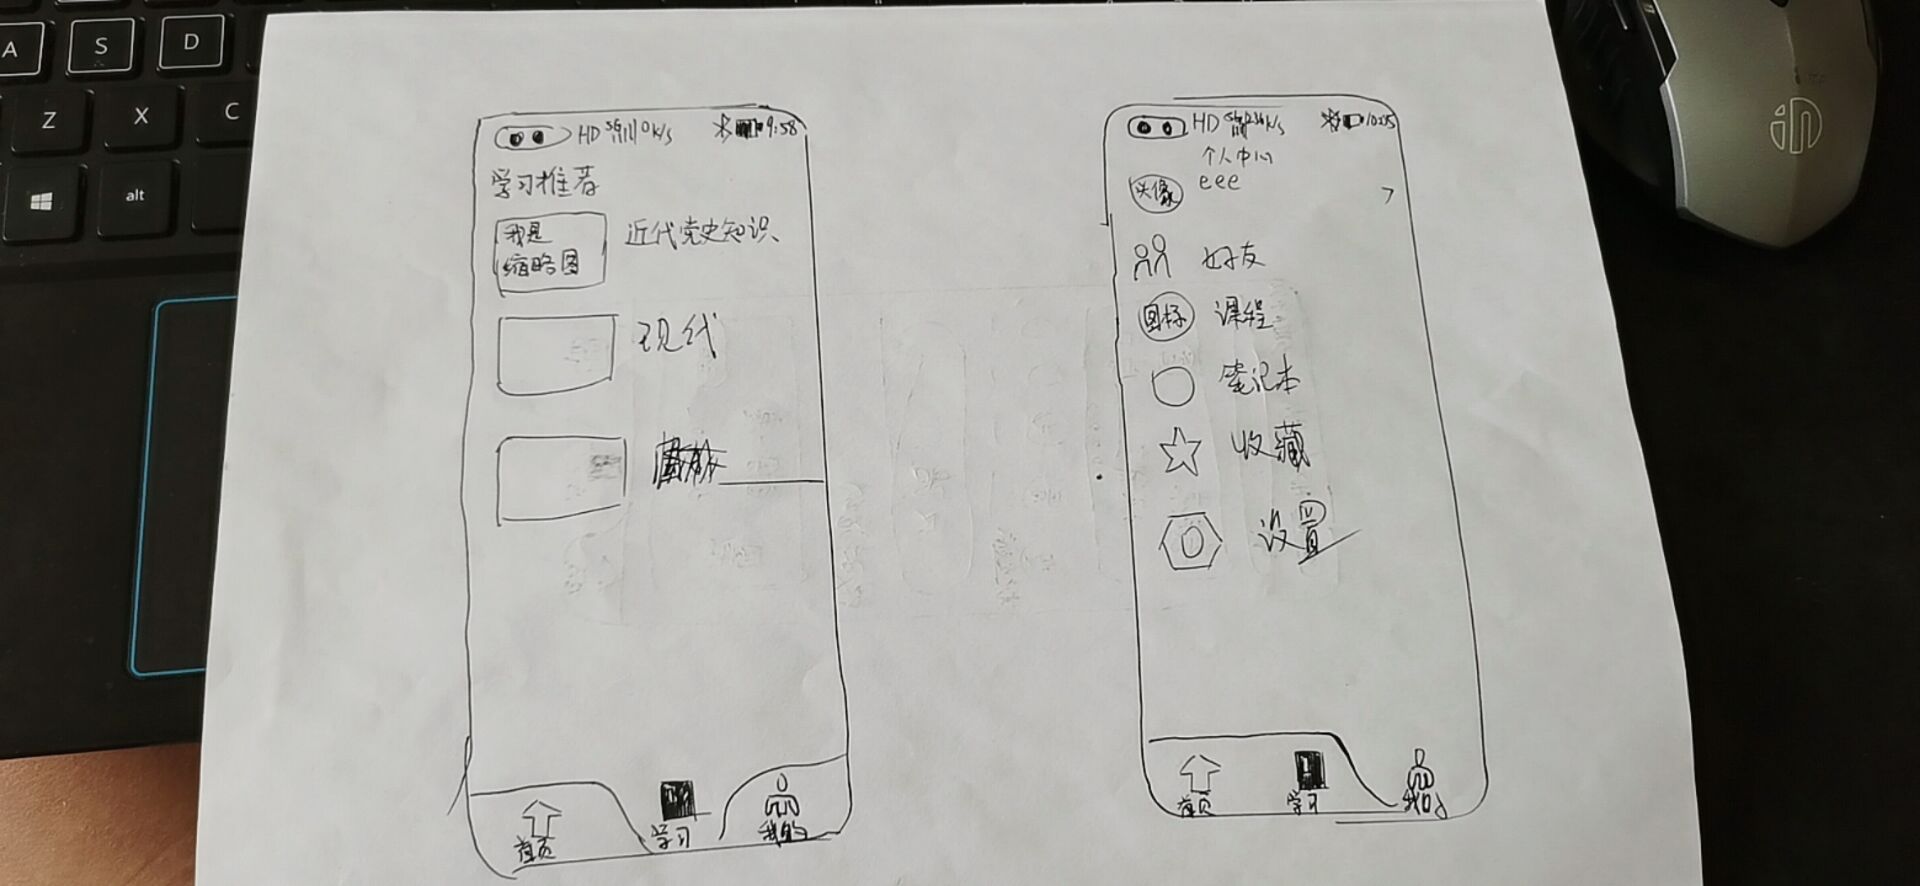 A
S
D
Z
X
C
alt
HD 5G 0K/s
9:58
学习推荐
我是
缩略图
近代党史知识
现代
首页
学习
我的
HD
个人中心
头像
eee
好友
图标
课程
笔记本
收藏
设置
首页
学习
我的